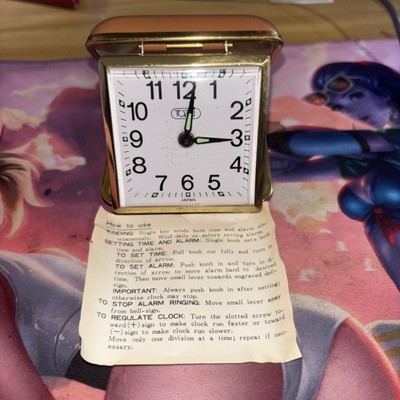 11 12 1
10 2
TOZAJ
9 3
8 4
7 6 5
JAPAN
How to use
WINDING: Single key winds both time and alarm simul-
taneously. Wind daily or before setting alarm.
SETTING TIME AND ALARM: Single knob sets both
time and alarm.
TO SET TIME: Pull knob out fully and turn in
direction of arrow.
TO SET ALARM: Push knob in and turn in di-
rection of arrow to move alarm hand to desired
time. Then move small lever towards engraved dell-
sign.
IMPORTANT: Always push knob in after setting;
otherwise clock may stop.
TO STOP ALARM RINGING: Move small lever away
from bell-sign.
TO REGULATE CLOCK: Turn the slotted screw to-
ward (+) sign to make clock run faster or toward
(—) sign to make clock run slower.
Move only one division at a time; repeat if nec-
essary.